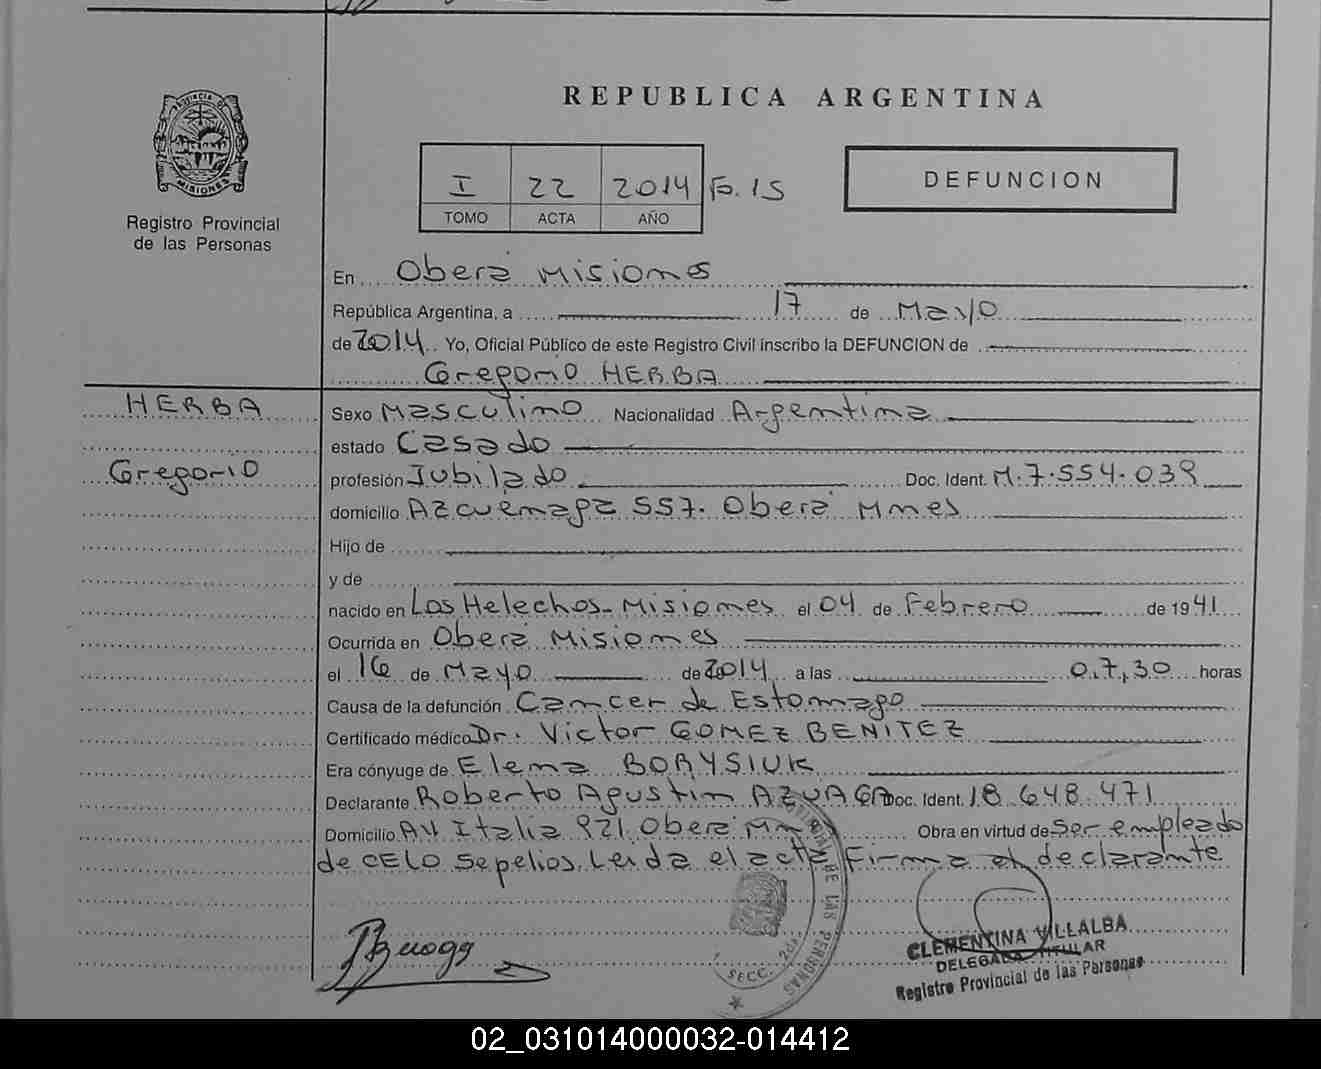 REPUBLICA ARGENTINA
PROVINCIA DE
MISIONES
Registro Provincial
de las Personas
I 22 2014 Fo. 15
TOMO ACTA AÑO
DEFUNCION
En Oberá Misiones
República Argentina, a 17 de Mayo
de 2014 Yo, Oficial Público de este Registro Civil inscribo la DEFUNCION de
Gregorio HERBA
HERBA
Gregorio
Sexo Masculino Nacionalidad Argentina
estado Casado
profesión Jubilado Doc. Ident. M.7.554.039
domicilio Azcuénaga 557. Oberá Mnes
Hijo de
y de
nacido en Los Helechos-Misiones el 04 de Febrero de 1941
Ocurrida en Oberá Misiones
el 16 de Mayo de 2014 a las 07,30 horas
Causa de la defunción Cancer de Estomago
Certificado médico Dr. Victor GOMEZ BENITEZ
Era cónyuge de Elena BORYSIUK
Declarante Roberto Agustin AZUAGA Doc. Ident. 18.648.471
Domicilio AV Italia 921 Oberá Mnes Obra en virtud de ser empleado
de CELO Sepelios. Leida el acta Firma el declarante
DE LAS PERSONAS
SECC.
CLEMENTINA VILLALBA
DELEGADA TITULAR
Registro Provincial de las Personas
02_031014000032-014412